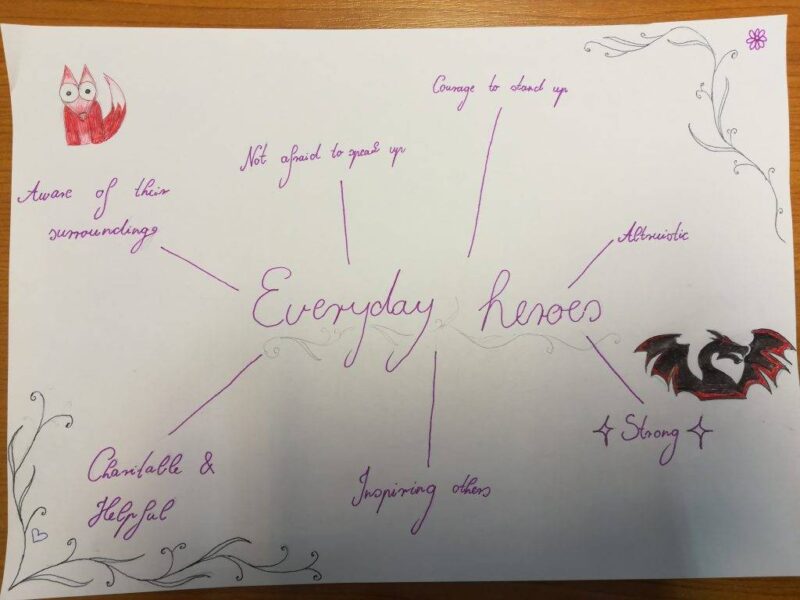 Courage to stand up
Not afraid to speak up
Aware of their
surroundings
Altruistic
Everyday heroes
Strong
Charitable &
Helpful
Inspiring others